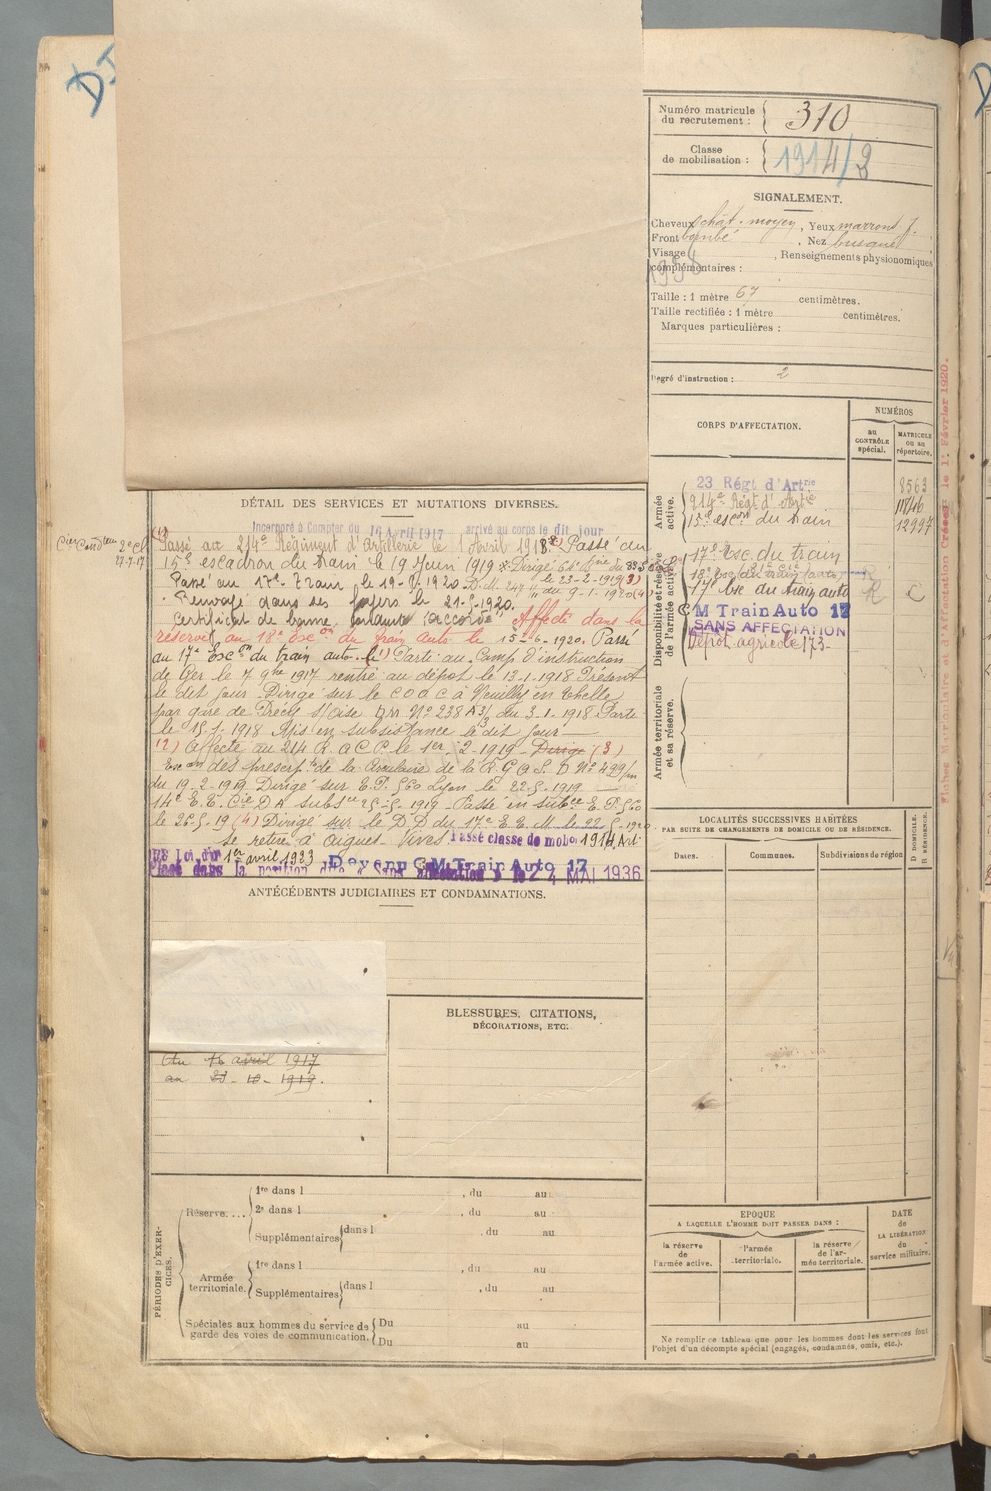 Numéro matricule du recrutement : 310
Classe de mobilisation : 1914/2
SIGNALEMENT.
Cheveux chât. moyen, Yeux marrons f.
Front bombé, Nez busqué
Visage , Renseignements physionomiques
complémentaires :
Taille : 1 mètre 67 centimètres.
Taille rectifiée : 1 mètre centimètres.
Marques particulières :
Degré d'instruction : 2
CORPS D'AFFECTATION.
NUMÉROS
au CONTRÔLE spécial.
MATRICULE ou au répertoire.
Armée active.
23 Régt d'Artrie 8563
214e Régt d'Artie
15e escon du train 12997
Disponibilité et réserve de l'armée active.
17e Esc. du train
18e Esc. du train auto R
17e Esc du train auto R C
C M Train Auto 17
SANS AFFECTATION
Dépôt agricole 173
Armée territoriale et sa réserve.
DÉTAIL DES SERVICES ET MUTATIONS DIVERSES.
Incorporé à Compter du 16 Avril 1917 arrivé au corps le dit jour
2e Cl
27-7-17
Passé au 214e Régiment d'Artillerie le 1 Avril 1918 Passé au
15e escadron du train le 19 Juin 1919 Dirigé
le 23-2-1919 (3)
Passé au 17e Train le 19-1-1920 D.M. du 9-1-1920 (4)
Renvoyé dans ses foyers le 21-5-1920.
Certificat de bonne conduite "accordé" Affecté dans la
réserve au 18e Escon du train auto le 15-6-1920. Passé
au 17e Escon du train auto. (1) Parti au Camp d'instruction
de Ger le 7 9bre 1917 rentré au dépôt le 13-1-1918 Présent
le dit jour. Dirigé sur le C O A C à Neuilly en Thelle
par gare de Précy s/Oise DM No 238 A 3/3 du 3-1-1918 Parti
le 15-1-1918 Mis en subsistance le dit jour
(2) Affecté au 214 R.A.C.P. le 1er-2-1919 Dirigé (3)
Exon des prescripts de la Circulaire de la R.G.A.S. D No 499/m
du 19-2-1919 Dirigé sur E.P. 560 Lyon le 22-5-1919
14e E.T. Cie D A subsce 25-5-1919 Passé en subce E.P. 560
le 26-5-19 (4) Dirigé sur le D D du 17e E.T. M le 22-5-1920
se retire à Aigues-Vives. Passé classe de mobon 1914, Art.
Loi du 1er avril 1933 Devenu C M Train Auto 17
Placé dans la position dite « Sans affectation » le 4 MAI 1936
ANTÉCÉDENTS JUDICIAIRES ET CONDAMNATIONS.
Du 16 avril 1917
au 23-10-1919.
BLESSURES, CITATIONS,
DÉCORATIONS, ETC.
LOCALITÉS SUCCESSIVES HABITÉES
PAR SUITE DE CHANGEMENTS DE DOMICILE OU DE RÉSIDENCE.
Dates. Communes. Subdivisions de région
D DOMICILE.
R RÉSIDENCE.
PÉRIODES D'EXERCICES.
Réserve....
1re dans l , du au
2e dans l , du au
Supplémentaires dans l , du au
Armée territoriale.
1re dans l , du au
Supplémentaires dans l , du au
Spéciales aux hommes du service de garde des voies de communication.
Du au
Du au
EPOQUE
A LAQUELLE L'HOMME DOIT PASSER DANS :
la réserve de l'armée active.
l'armée territoriale.
la réserve de l'armée territoriale.
DATE de LA LIBÉRATION du service militaire.
Ne remplir ce tableau que pour les hommes dont les services font
l'objet d'un décompte spécial (engagés, condamnés, omis, etc.).
Fiches Matriculaire et d'Affectation Créées le 1er Février 1920.